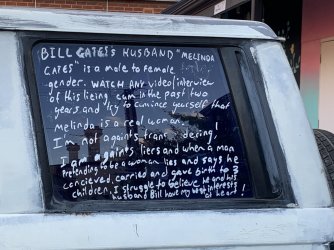 BILL GATES'S HUSBAND "MELINDA
GATES" is a male to female
gender. WATCH ANY video/interview
of this lieing cum in the past two
years and try to convince yourself that
Melinda is a real woman.
I'm not againts trans
I am againts liers and when a man
Pretending to be a woman lies and says he
concieved, carried and gave birth to 3
children, I struggle to believe he and his
husband Bill have my best interests
at heart!